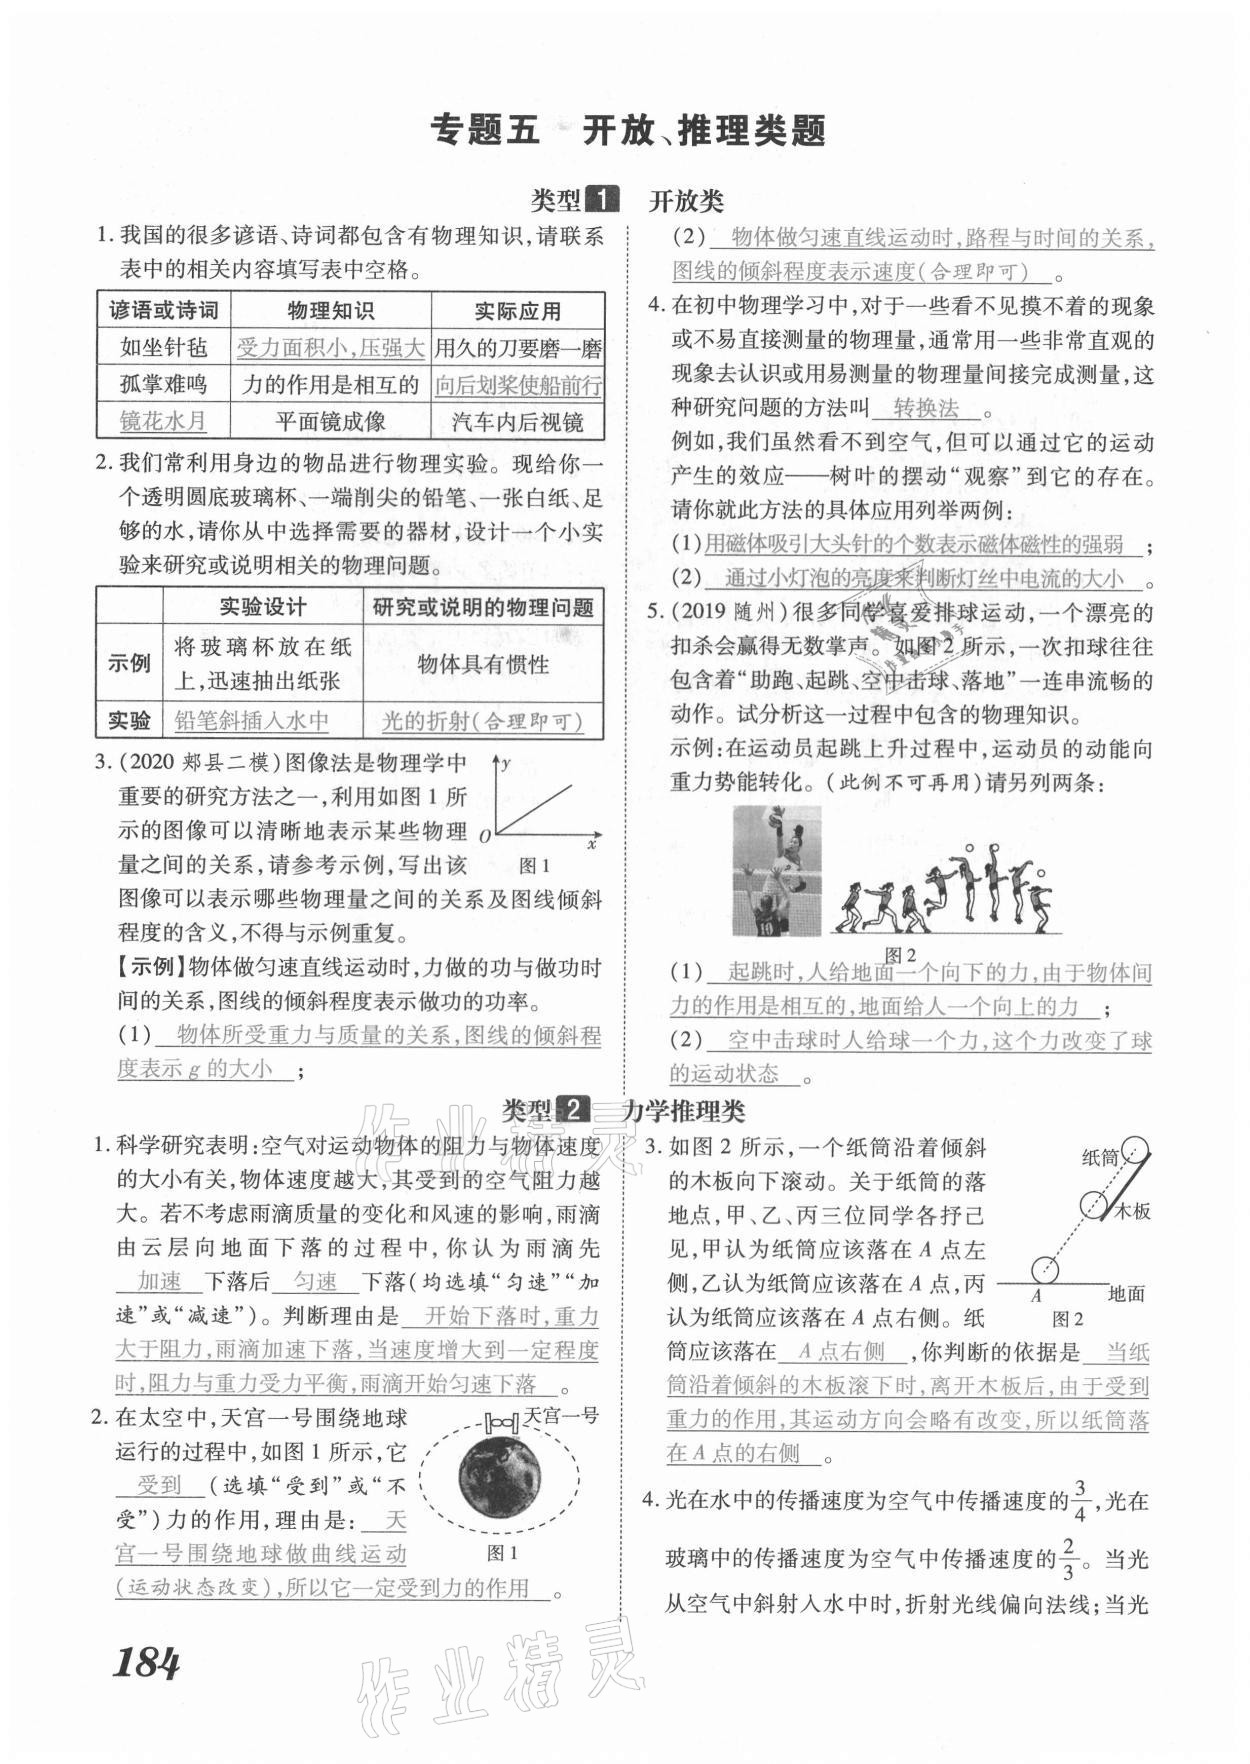 专题五 开放、推理类题
类型1 开放类
1. 我国的很多谚语、诗词都包含有物理知识,请联系
表中的相关内容填写表中空格。
谚语或诗词 物理知识 实际应用
如坐针毡 受力面积小,压强大 用久的刀要磨一磨
孤掌难鸣 力的作用是相互的 向后划桨使船前行
镜花水月 平面镜成像 汽车内后视镜
2. 我们常利用身边的物品进行物理实验。现给你一
个透明圆底玻璃杯、一端削尖的铅笔、一张白纸、足
够的水,请你从中选择需要的器材,设计一个小实
验来研究或说明相关的物理问题。
实验设计 研究或说明的物理问题
示例 将玻璃杯放在纸
上,迅速抽出纸张 物体具有惯性
实验 铅笔斜插入水中 光的折射(合理即可)
3. (2020 郏县二模)图像法是物理学中
重要的研究方法之一,利用如图 1 所
示的图像可以清晰地表示某些物理
量之间的关系,请参考示例,写出该
图像可以表示哪些物理量之间的关系及图线倾斜
程度的含义,不得与示例重复。
y
O
x
图 1
【示例】物体做匀速直线运动时,力做的功与做功时
间的关系,图线的倾斜程度表示做功的功率。
(1) 物体所受重力与质量的关系,图线的倾斜程
度表示 g 的大小 ;
(2) 物体做匀速直线运动时,路程与时间的关系,
图线的倾斜程度表示速度(合理即可) 。
4. 在初中物理学习中,对于一些看不见摸不着的现象
或不易直接测量的物理量,通常用一些非常直观的
现象去认识或用易测量的物理量间接完成测量,这
种研究问题的方法叫 转换法 。
例如,我们虽然看不到空气,但可以通过它的运动
产生的效应——树叶的摆动“观察”到它的存在。
请你就此方法的具体应用列举两例:
(1) 用磁体吸引大头针的个数表示磁体磁性的强弱 ;
(2) 通过小灯泡的亮度来判断灯丝中电流的大小 。
5. (2019 随州)很多同学喜爱排球运动,一个漂亮的
扣杀会赢得无数掌声。如图 2 所示,一次扣球往往
包含着“助跑、起跳、空中击球、落地”一连串流畅的
动作。试分析这一过程中包含的物理知识。
示例:在运动员起跳上升过程中,运动员的动能向
重力势能转化。(此例不可再用)请另列两条:
10
图 2
(1) 起跳时,人给地面一个向下的力,由于物体间
力的作用是相互的,地面给人一个向上的力 ;
(2) 空中击球时人给球一个力,这个力改变了球
的运动状态 。
类型2 力学推理类
1. 科学研究表明:空气对运动物体的阻力与物体速度
的大小有关,物体速度越大,其受到的空气阻力越
大。若不考虑雨滴质量的变化和风速的影响,雨滴
由云层向地面下落的过程中,你认为雨滴先
加速 下落后 匀速 下落(均选填“匀速”“加
速”或“减速”)。判断理由是 开始下落时,重力
大于阻力,雨滴加速下落,当速度增大到一定程度
时,阻力与重力受力平衡,雨滴开始匀速下落 。
2. 在太空中,天宫一号围绕地球
运行的过程中,如图 1 所示,它
受到 (选填“受到”或“不
受”)力的作用,理由是: 天
宫一号围绕地球做曲线运动
(运动状态改变),所以它一定受到力的作用 。
天宫一号
图 1
3. 如图 2 所示,一个纸筒沿着倾斜
的木板向下滚动。关于纸筒的落
地点,甲、乙、丙三位同学各抒己
见,甲认为纸筒应该落在 A 点左
侧,乙认为纸筒应该落在 A 点,丙
认为纸筒应该落在 A 点右侧。纸
筒应该落在 A 点右侧 ,你判断的依据是 当纸
筒沿着倾斜的木板滚下时,离开木板后,由于受到
重力的作用,其运动方向会略有改变,所以纸筒落
在 A 点的右侧 。
纸筒
木板
A 地面
图 2
4. 光在水中的传播速度为空气中传播速度的3/4,光在
玻璃中的传播速度为空气中传播速度的2/3。当光
从空气中斜射入水中时,折射光线偏向法线;当光
184
作业精灵
作业精灵